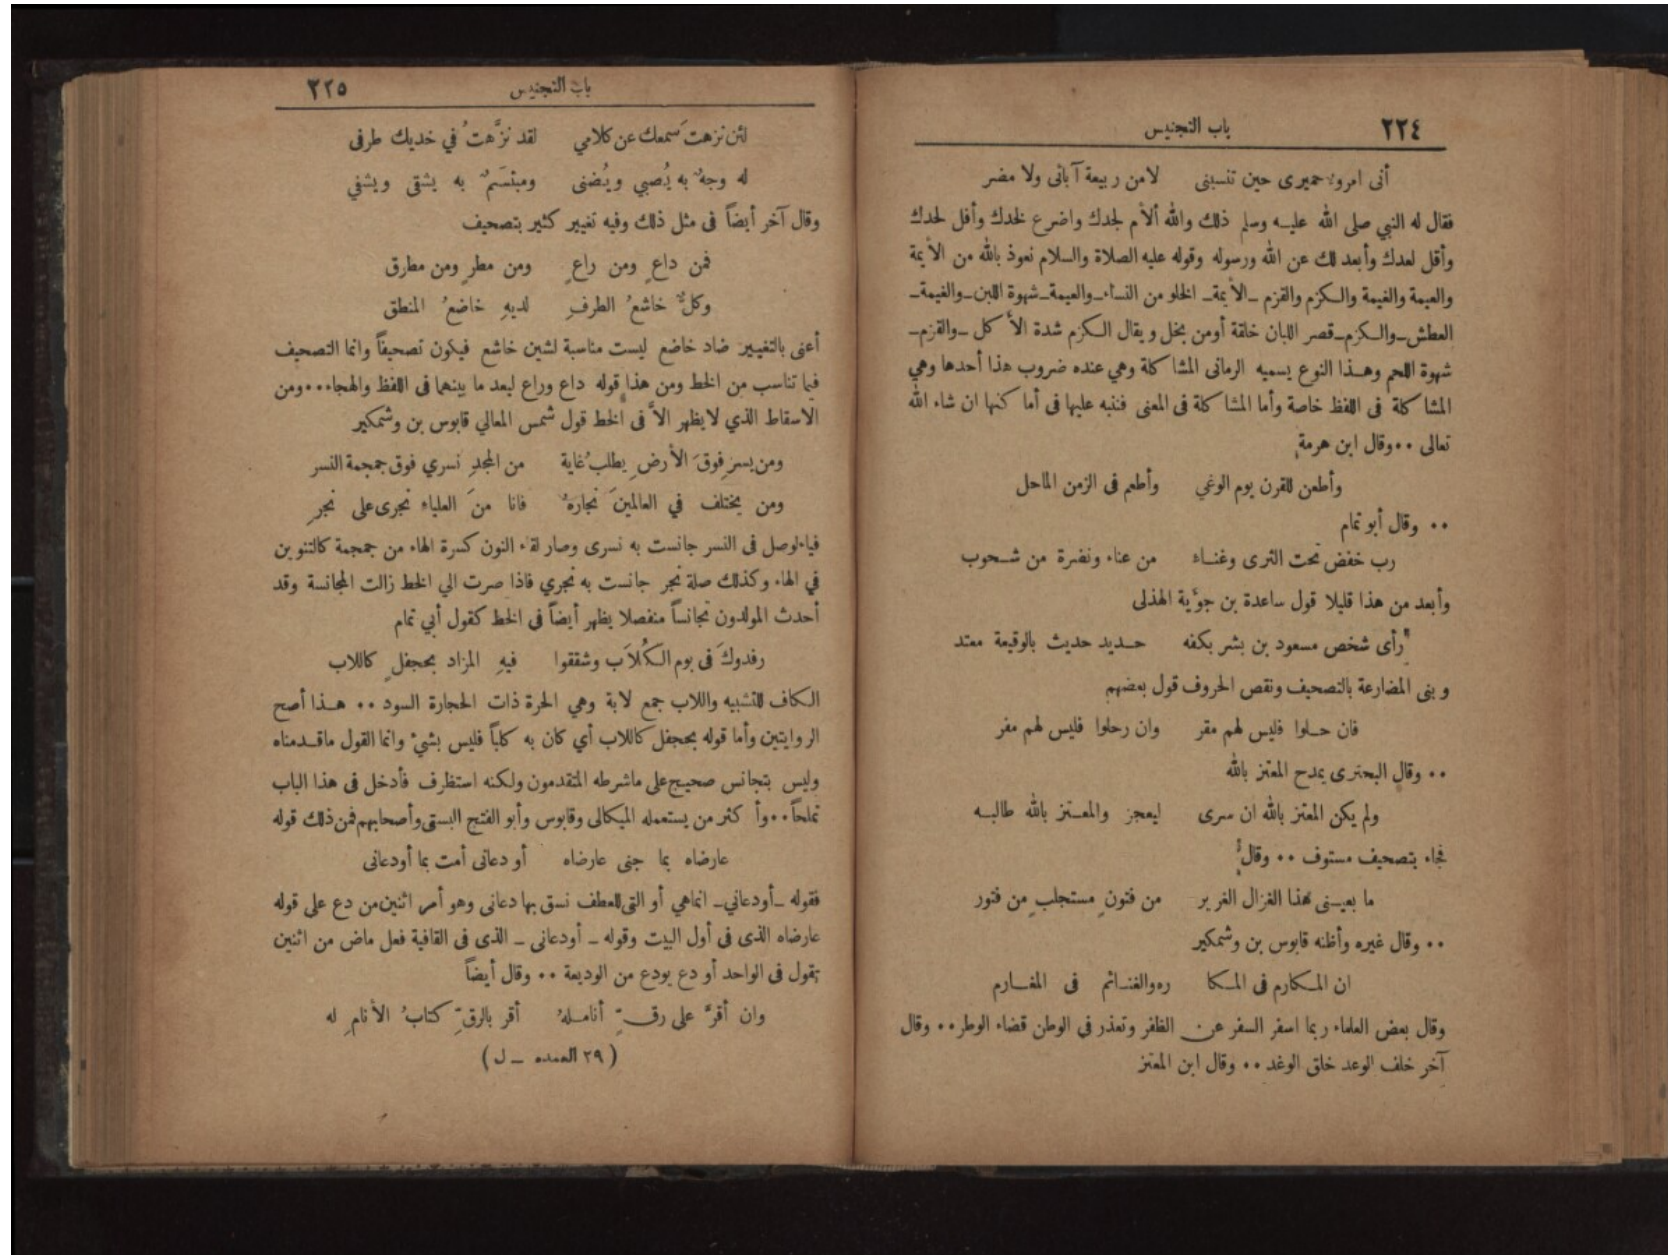 ٢٢٤ باب التجنيس
أنى امرؤ حميرى حين تنسبنى لامن ربيعة آبائى ولا مضر
فقال له النبي صلى الله عليه وسلم ذلك والله ألأم لجدك واضرع لخدك وأفل لحدك
وأقل لعدك وأبعد لك عن الله ورسوله وقوله عليه الصلاة والسلام نعوذ بالله من الأيمة
والعيمة والغيمة والكزم والقزم ـ الأيمة ـ الخلو من النساء ـ والعيمة ـ شهوة اللبن ـ والغيمة ـ
العطش ـ والكزم ـ قصر اللبان خلقة أومن بخل ويقال الكزم شدة الأكل ـ والقزم ـ
شهوة اللحم وهذا النوع يسميه الرمانى المشاكلة وهي عنده ضروب هذا أحدها وهي
المشاكلة فى اللفظ خاصة وأما المشاكلة فى المعنى فننبه عليها فى أماكنها ان شاء الله
تعالى ٠٠ وقال ابن هرمة
وأطعن للقرن يوم الوغي وأطعم فى الزمن الماحل
٠٠ وقال أبو تمام
رب خفض تحت الثرى وغناء من عناء ونضرة من شحوب
وأبعد من هذا قليلا قول ساعدة بن جؤية الهذلى
رأى شخص مسعود بن بشر بكفه حديد حديث بالوقيعة معتد
وبنى المضارعة بالتصحيف ونقص الحروف قول بعضهم
فان حلوا فليس لهم مقر وان رحلوا فليس لهم مفر
٠٠ وقال البحترى يمدح المعتز بالله
ولم يكن المعتز بالله ان سرى ليعجز والمعتز بالله طالبه
فجاء بتصحيف مستوف ٠٠ وقال
ما بعينى هذا الغزال الغرير من فتونٍ مستجلبٍ من فتور
٠٠ وقال غيره وأظنه قابوس بن وشمكير
ان المكارم فى المكا ره والغنائم فى المغارم
وقال بعض العلماء ربما اسفر السفر عن الظفر وتعذر في الوطن قضاء الوطر ٠٠ وقال
آخر خلف الوعد خلق الوغد ٠٠ وقال ابن المعتز
باب التجنيس ٢٢٥
لئن نزهتَ سمعك عن كلامي لقد نزَّهتُ في خديك طرفى
له وجهٌ به يُصبي ويُضنى ومبتسَمٌ به يشقى ويشفي
وقال آخر أيضاً فى مثل ذلك وفيه تغيير كثير بتصحيف
فمن داعٍ ومن راعٍ ومن مطرٍ ومن مطرق
وكلٌّ خاشعُ الطرفِ لديهِ خاضعُ المنطق
أعنى بالتغيير ضاد خاضع ليست مناسبة لشين خاشع فيكون تصحيفاً وانما التصحيف
فيما تناسب من الخط ومن هذا قوله داع وراع لبعد ما بينهما فى اللفظ والهجاء ٠٠٠ ومن
الاسقاط الذي لايظهر الاَّ فى الخط قول شمس المعالي قابوس بن وشمكير
ومن يسرِ فوقَ الأرضِ يطلبُ غاية من المجدِ نسري فوق جمجمة النسر
ومن يختلف في العالمينَ نجارَهُ فانا منَ العلياءِ نجرى على نجرِ
فياء لوصل فى النسر جانست به نسرى وصار لقاء النون كسرة الهاء من جمجمة كالتنوين
في الهاء وكذلك صلة نجر جانست به نجري فاذا صرت الي الخط زالت المجانسة وقد
أحدث المولدون تجانساً منفصلا يظهر أيضاً فى الخط كقول أبي تمام
رفدوكَ فى يوم الكُلاَب وشققوا فيهِ المزاد بجحفلٍ كاللاب
الكاف للتشبيه واللاب جمع لابة وهي الحرة ذات الحجارة السود ٠٠ هذا أصح
الروايتين وأما قوله بجحفل كاللاب أي كان به كلباً فليس بشيء وانما القول ماقدمناه
وليس بتجانس صحيح على ماشرطه المتقدمون ولكنه استظرف فأدخل فى هذا الباب
تملحاً ٠٠ وأكثر من يستعمله الميكالى وقابوس وأبو الفتح البستى وأصحابهم فمن ذلك قوله
عارضاه بما جنى عارضاه أو دعانى أمت بما أودعانى
فقوله ـ أودعاني ـ انماهي أو التى للعطف نسق بها دعانى وهو أمر اثنين من دع على قوله
عارضاه الذى فى أول البيت وقوله ـ أودعانى ـ الذى فى القافية فعل ماض من اثنين
تقول فى الواحد أودع يودع من الوديعة ٠٠ وقال أيضاً
وان أقرَّ على رقٍّ أناملهُ أقر بالرقِّ كتابُ الأنامِ له
(٢٩ العمده ـ ل)